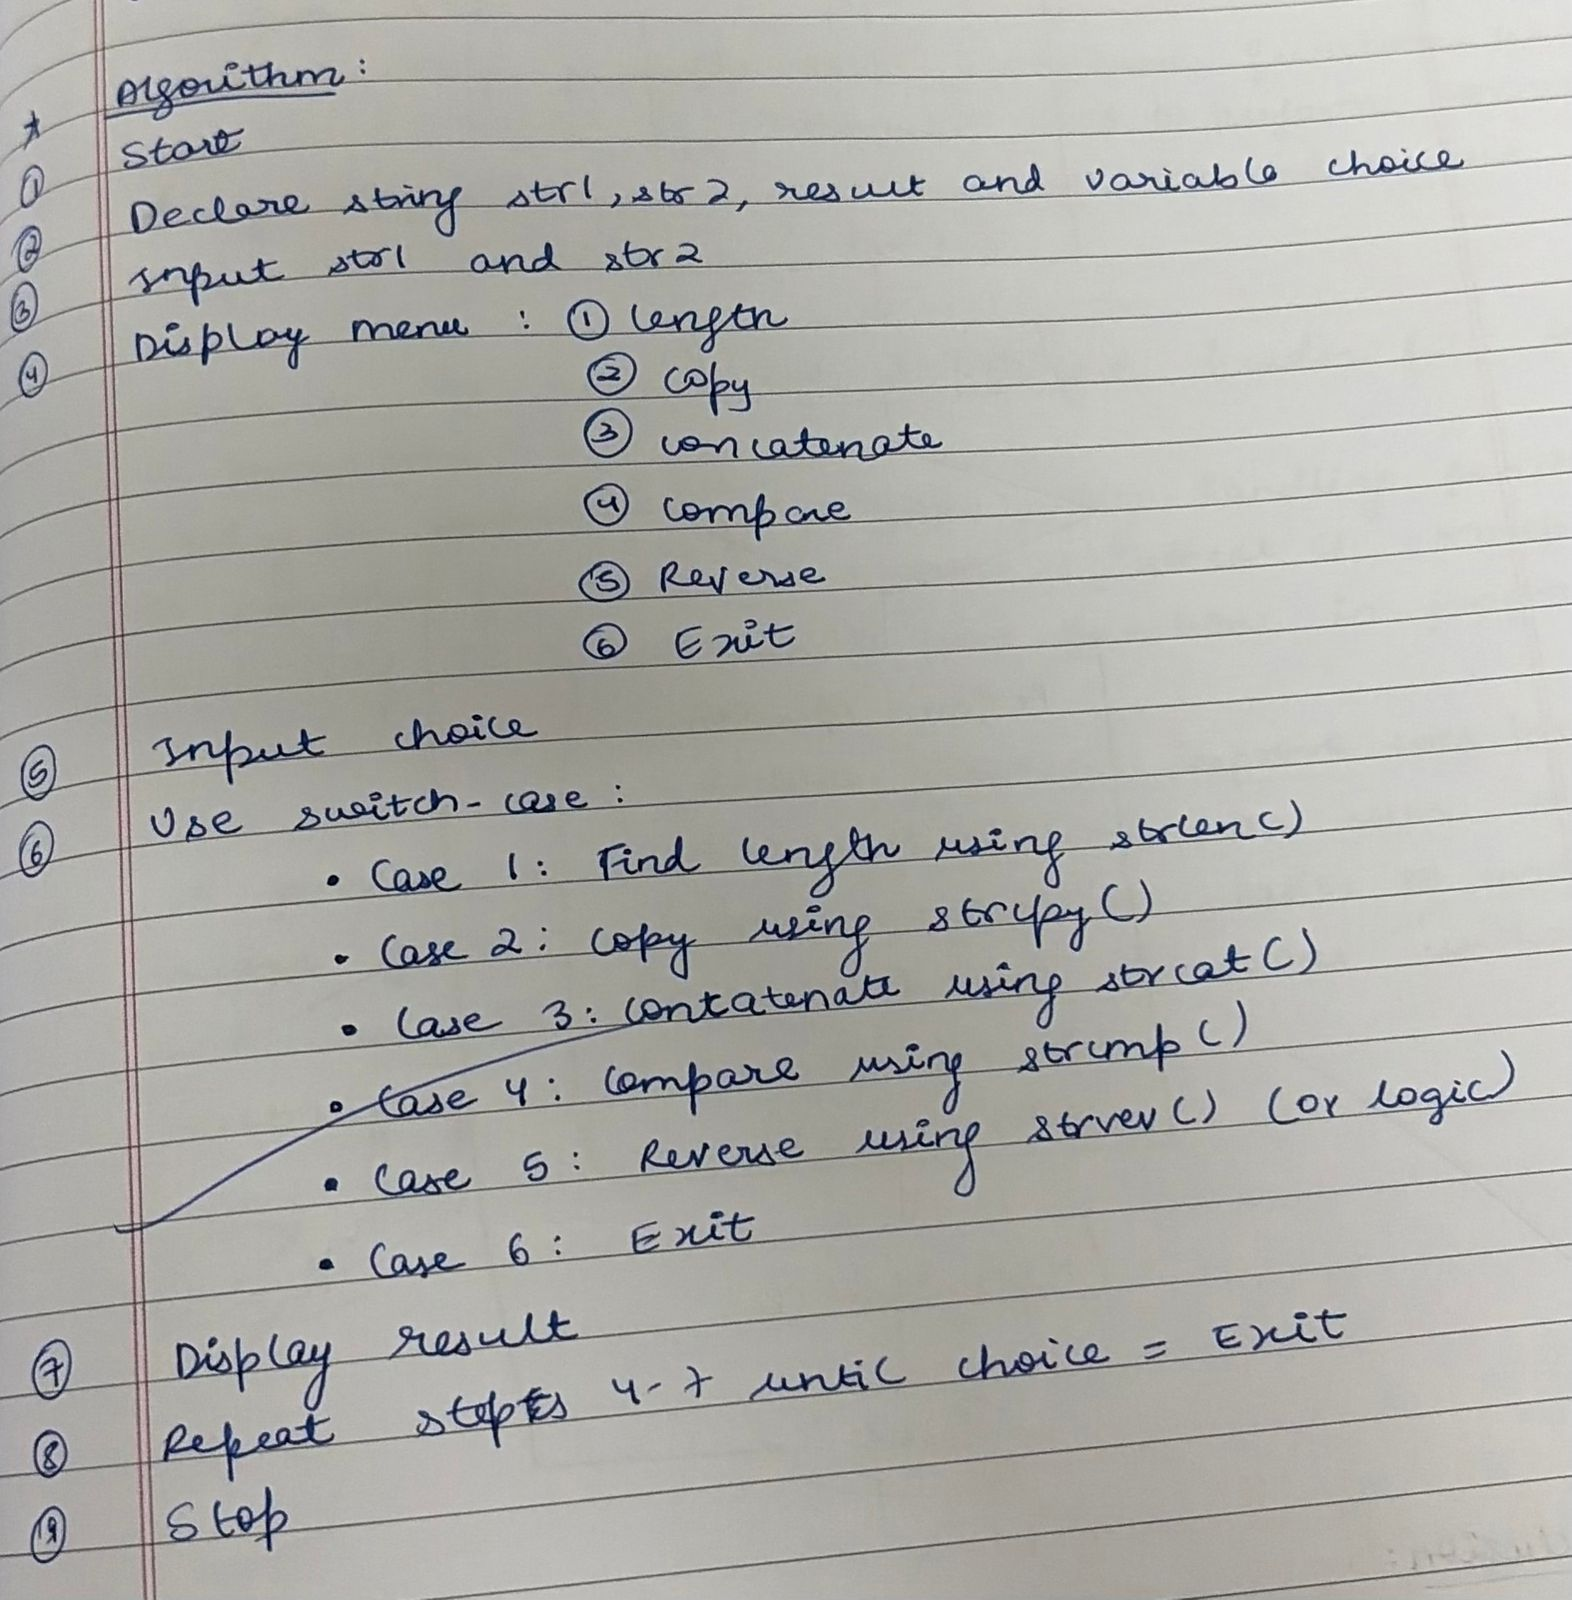 * Algorithm :
① Start
② Declare string str1, str2, result and variable choice
③ Input str1 and str2
④ Display menu : ① length
② copy
③ concatenate
④ compare
⑤ Reverse
⑥ Exit
⑤ Input choice
⑥ Use switch-case :
• Case 1: Find length using strlen()
• Case 2: copy using strcpy()
• Case 3: concatenate using strcat()
• Case 4: compare using strcmp()
• Case 5: Reverse using strrev() (or logic)
• Case 6: Exit
⑦ Display result
⑧ Repeat steps 4-7 until choice = Exit
⑨ Stop